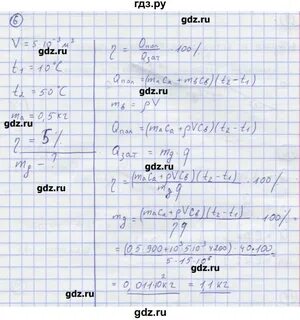 гдз.ру
6
V = 5·10⁻³ м³
t₁ = 10°C
t₂ = 50°C
mₐ = 0,5 кг
η = 5%
m_g - ?
η = Qпол / Qзат · 100%
Qпол = (mₐcₐ + m_в c_в)(t₂ - t₁)
m_в = ρV
Qпол = (mₐcₐ + ρVc_в)(t₂ - t₁)
Qзат = m_g q
η = (mₐcₐ + ρVc_в)(t₂ - t₁) / m_g q · 100%
m_g = (mₐcₐ + ρVc_в)(t₂ - t₁) / η q · 100% =
= (0,5·900 + 10³·5·10⁻³·4200)·40·100 / 5·15·10⁶
gdz.ru
gdz.ru
gdz.ru
gdz.ru
gdz.ru
gdz.ru